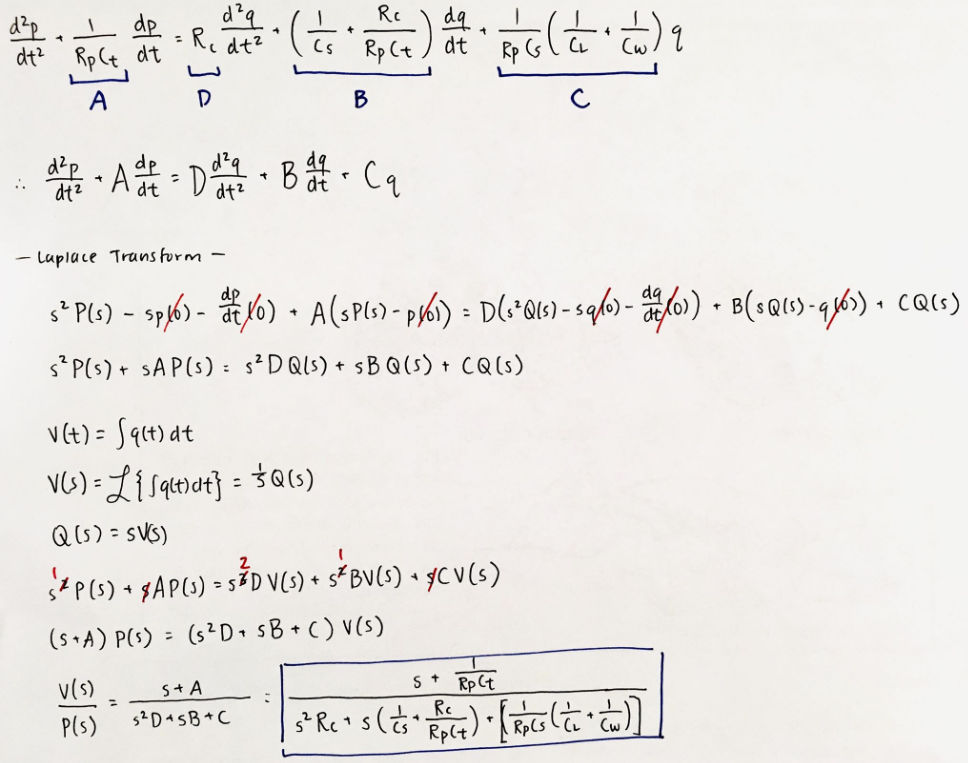 d²p/dt² + 1/(RpCt) dp/dt = Rc d²q/dt² + (1/Cs + Rc/(RpCt)) dq/dt + 1/(RpCs) (1/CL + 1/Cw) q
A D B C
∴ d²p/dt² + A dp/dt = D d²q/dt² + B dq/dt + Cq
— Laplace Transform —
s²P(s) - sp(0) - dp/dt(0) + A(sP(s) - p(0)) = D(s²Q(s) - sq(0) - dq/dt(0)) + B(sQ(s) - q(0)) + CQ(s)
s²P(s) + sAP(s) = s²DQ(s) + sBQ(s) + CQ(s)
V(t) = ∫q(t)dt
V(s) = ℒ{∫q(t)dt} = 1/s Q(s)
Q(s) = sV(s)
1 2 1
s²P(s) + sAP(s) = s³DV(s) + s²BV(s) + sCV(s)
(s+A) P(s) = (s²D + sB + C) V(s)
V(s)/P(s) = (s+A)/(s²D+sB+C) = (s + 1/(RpCt))/(s²Rc + s(1/Cs + Rc/(RpCt)) + [1/(RpCs) (1/CL + 1/Cw)])